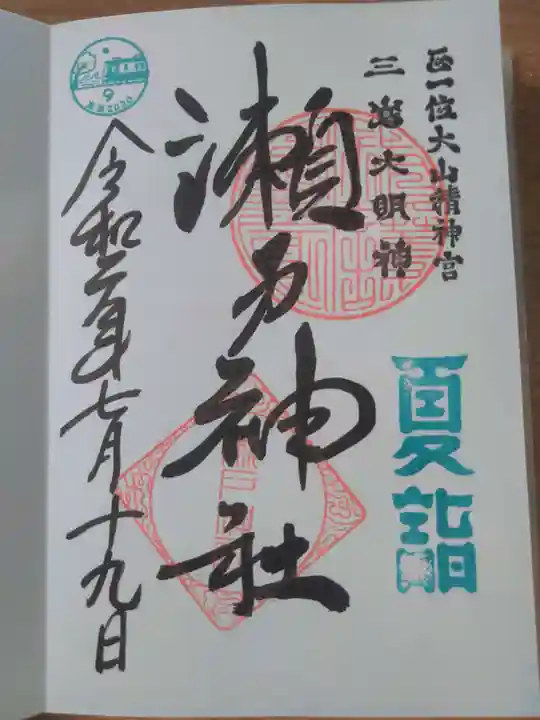 正一位大山積神宮
三島大明神
夏詣
瀬戸神社
令和二年七月十九日
9
2020